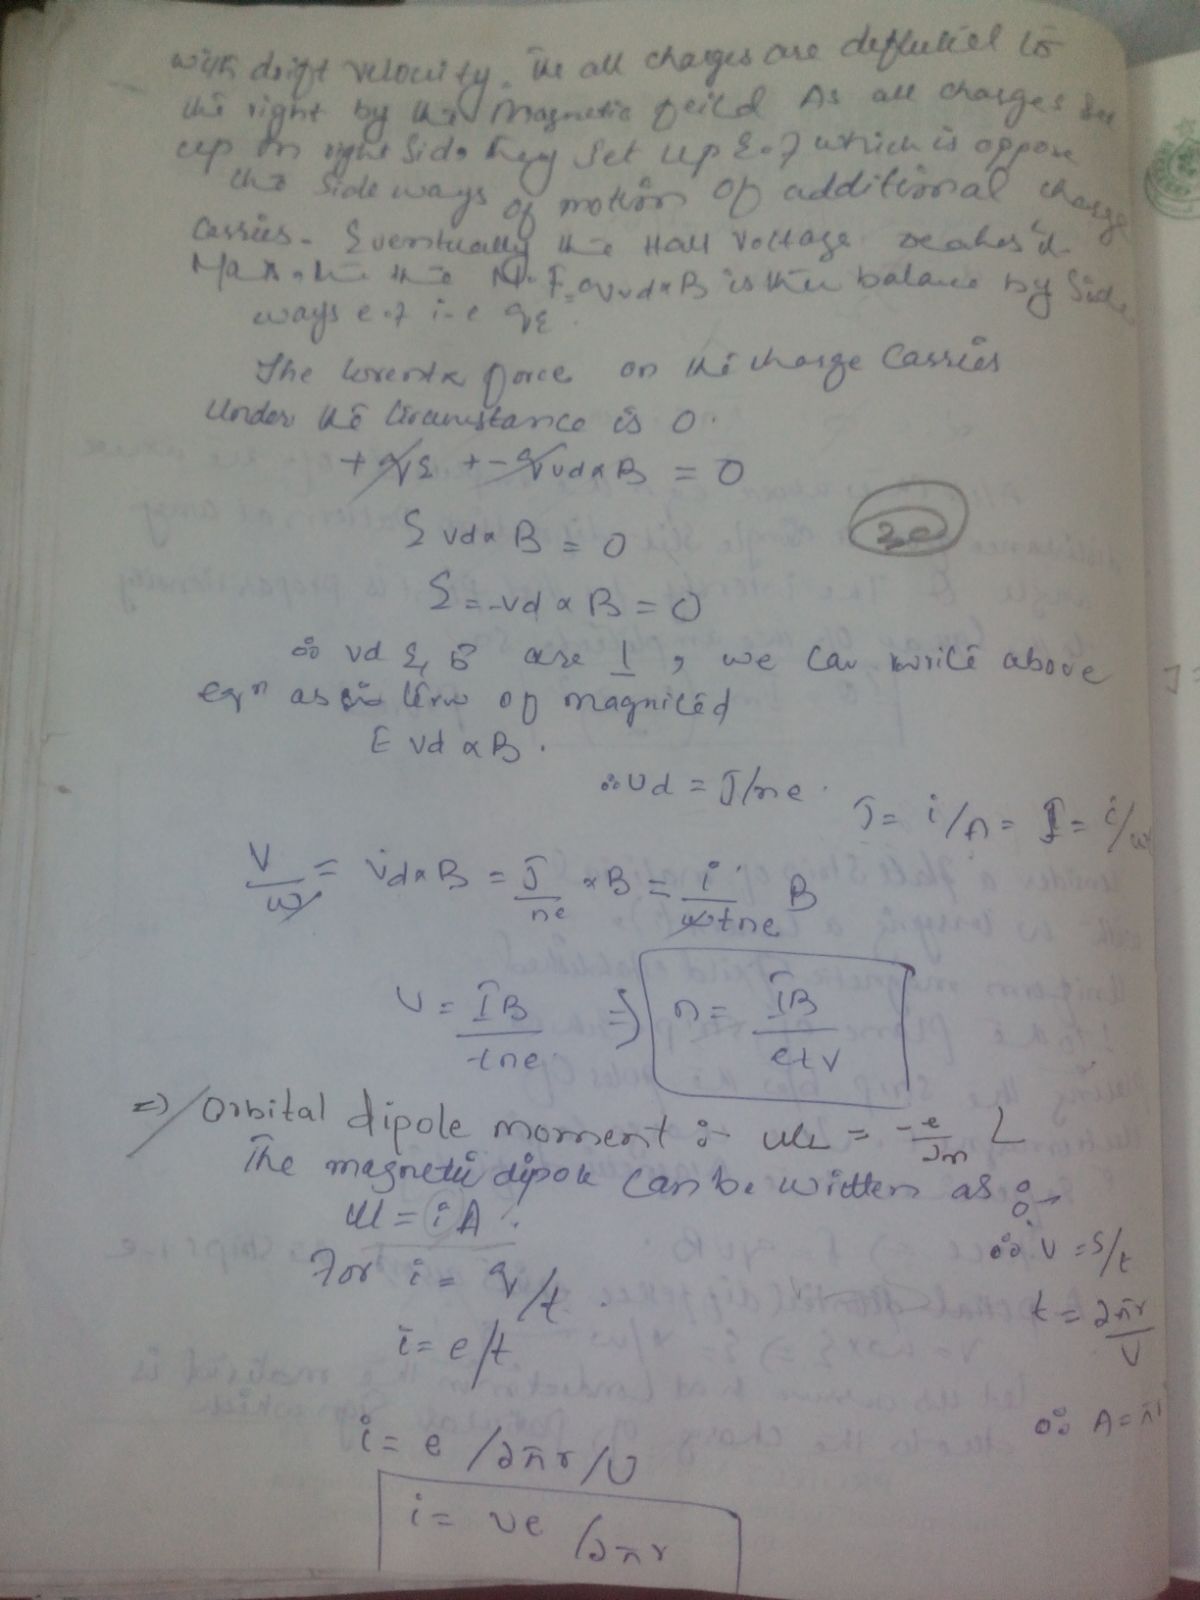 with drift velocity. The all charges are deflected to
the right by the Magnetic feild As all charges
up on right Side they Set up E.f which is oppose
the Side ways of motion of additional charge
Carries. Eventually the Hall Voltage reaches it
Max. the F = qvd×B is then balance by Side
ways e.f i-e qE
The Lorentz force on the charge Carries
Under the Circumstance is 0.
+ qE + - qvd×B = 0
E vd×B = 0
30
E = -vd×B = 0
∴ vd & B are ⊥, we can write above
eqn as in term of magnited
E vd×B.
∴ vd = J/ne
J = i/A = J = i/w
V/w = vd×B = J/ne × B = i/wtne B
V = IB/tne ⇒ n = IB/etv
⇒ Orbital dipole moment :- μL = -e/2m L
The magnetic dipole can be written as :-
μ = iA
∴ v = S/t
For i = q/t
t = 2πr/v
i = e/t
∴ A = π
i = e/2πr/v
i = ve/2πr